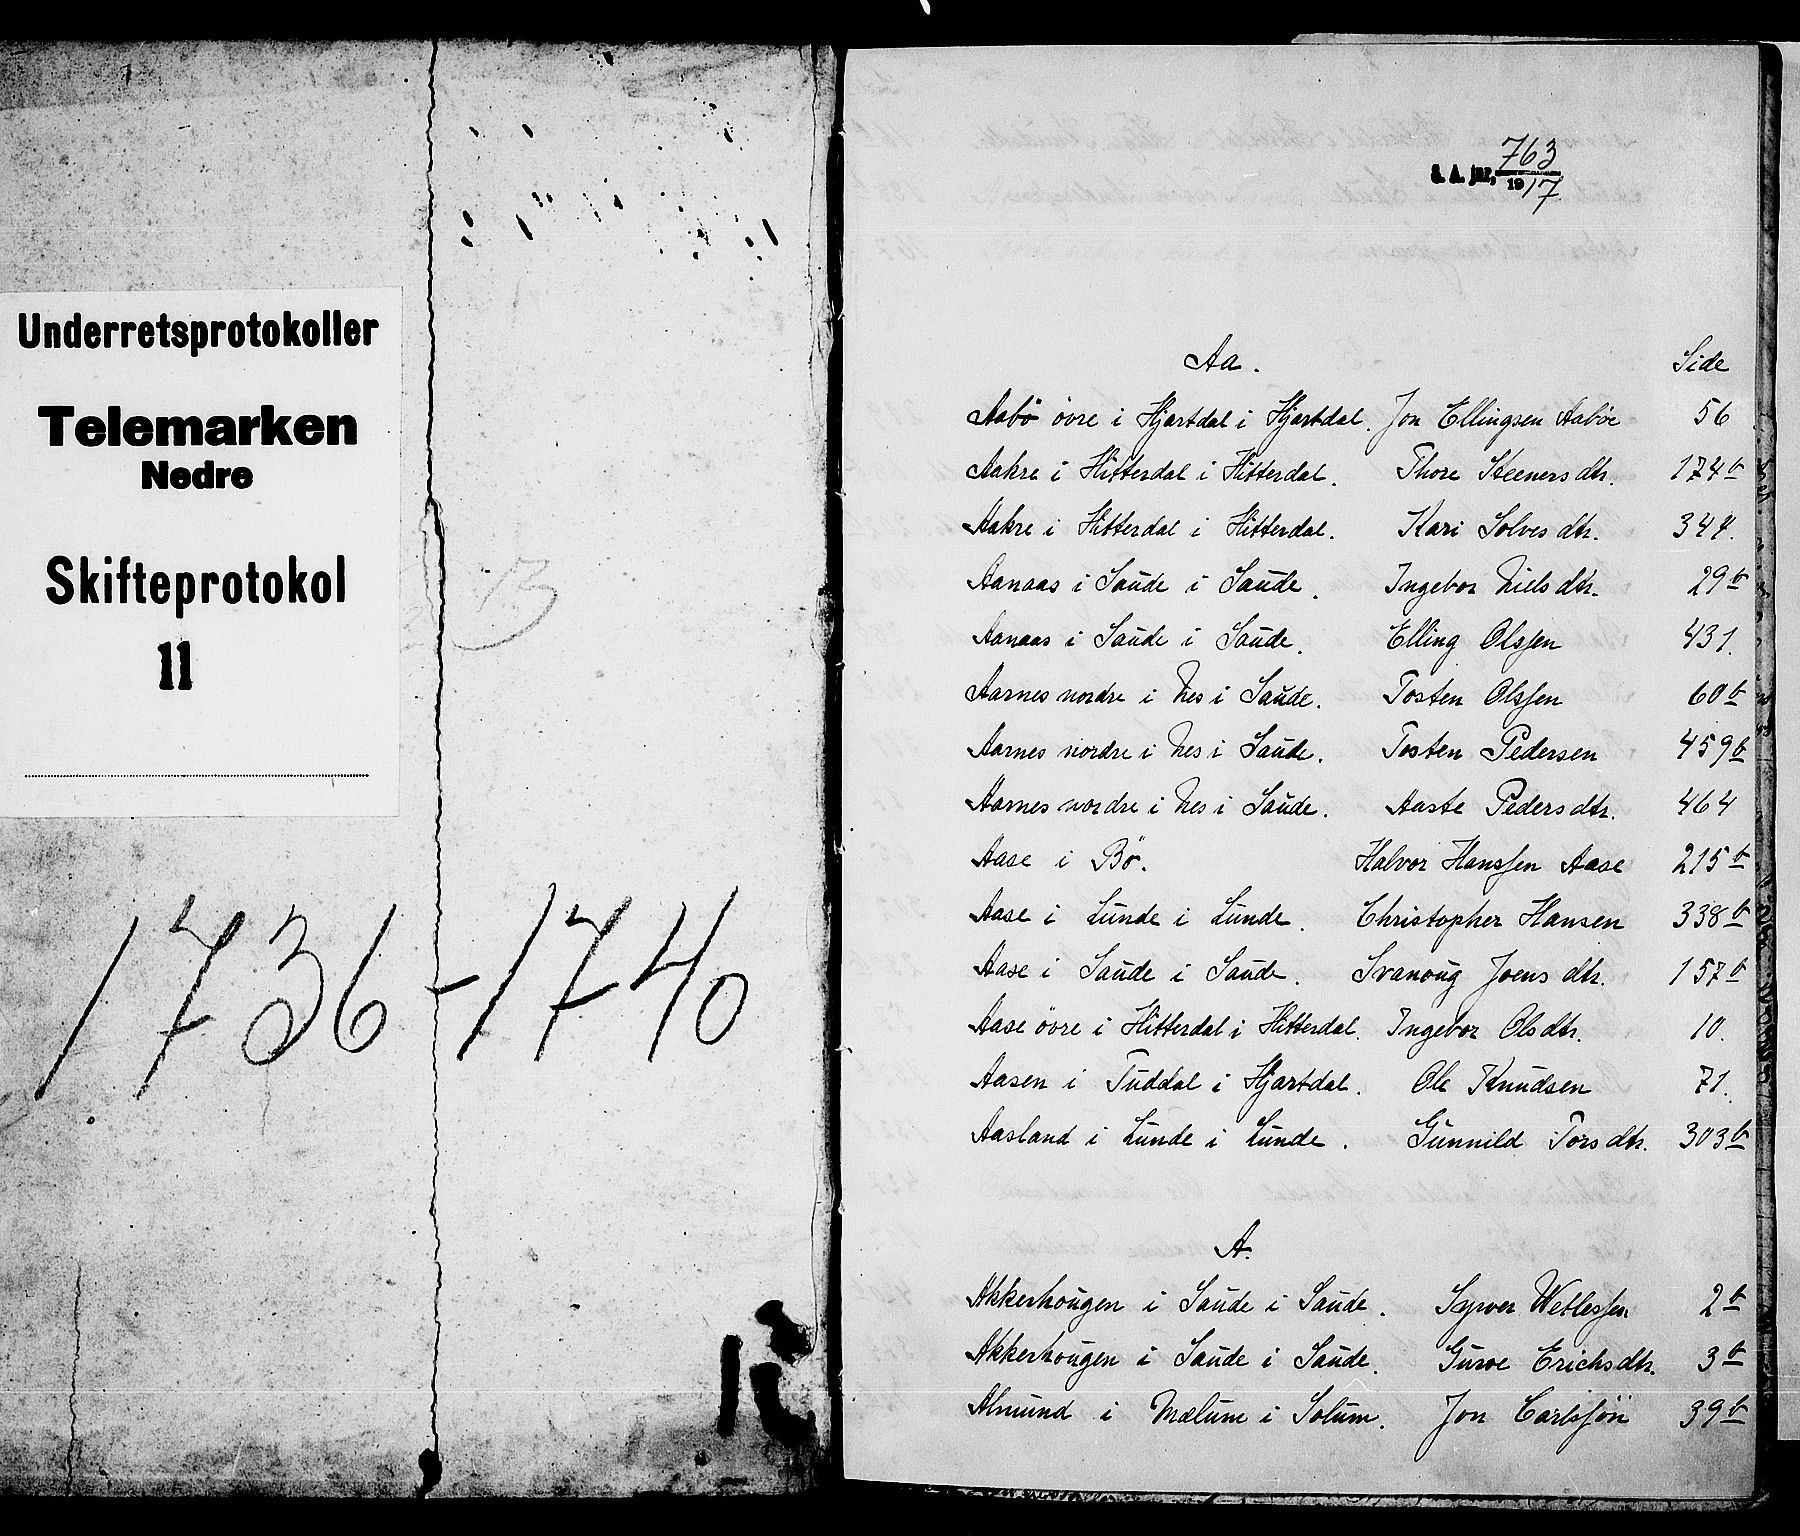 Underretsprotokoller
Telemarken
Nedre
Skifteprotokol
11
13
1736-1740
S. A. jnr. 763/1917
Aa. Side
Aabö övre i Hjartdal i Hjartdal. Jon Ellingsen Aaböe 56
Aakre i Hitterdal i Hitterdal. Thore Steenersdtr. 174b
Aakre i Hitterdal i Hitterdal. Kari Solvesdtr. 344.
Aanaas i Saude i Saude. Ingebor Nielsdtr. 29b
Aanaas i Saude i Saude. Elling Olssen 431.
Aarnes nordre i Nes i Saude. Tosten Olssen 60b
Aarnes nordre i Nes i Saude. Tosten Pedersen 459b
Aarnes nordre i Nes i Saude. Aaste Pedersdtr. 464
Aase i Bö. Halvor Hanssen Aase 215b
Aase i Lunde i Lunde. Christopher Hansen 338b
Aase i Saude i Saude. Svanoug Joensdtr. 157b
Aase övre i Hitterdal i Hitterdal. Ingebor Olsdtr. 10.
Aasen i Tuddal i Hjartdal. Ole Knudsen 71.
Aasland i Lunde i Lunde. Gunnild Torsdtr. 303b
A.
Akkerhougen i Saude i Saude. Syver Wetlessen 2b
Akkerhougen i Saude i Saude. Gurve Erichsdtr. 3b
Almund i Mælum i Solum. Jon Carlssön 39b